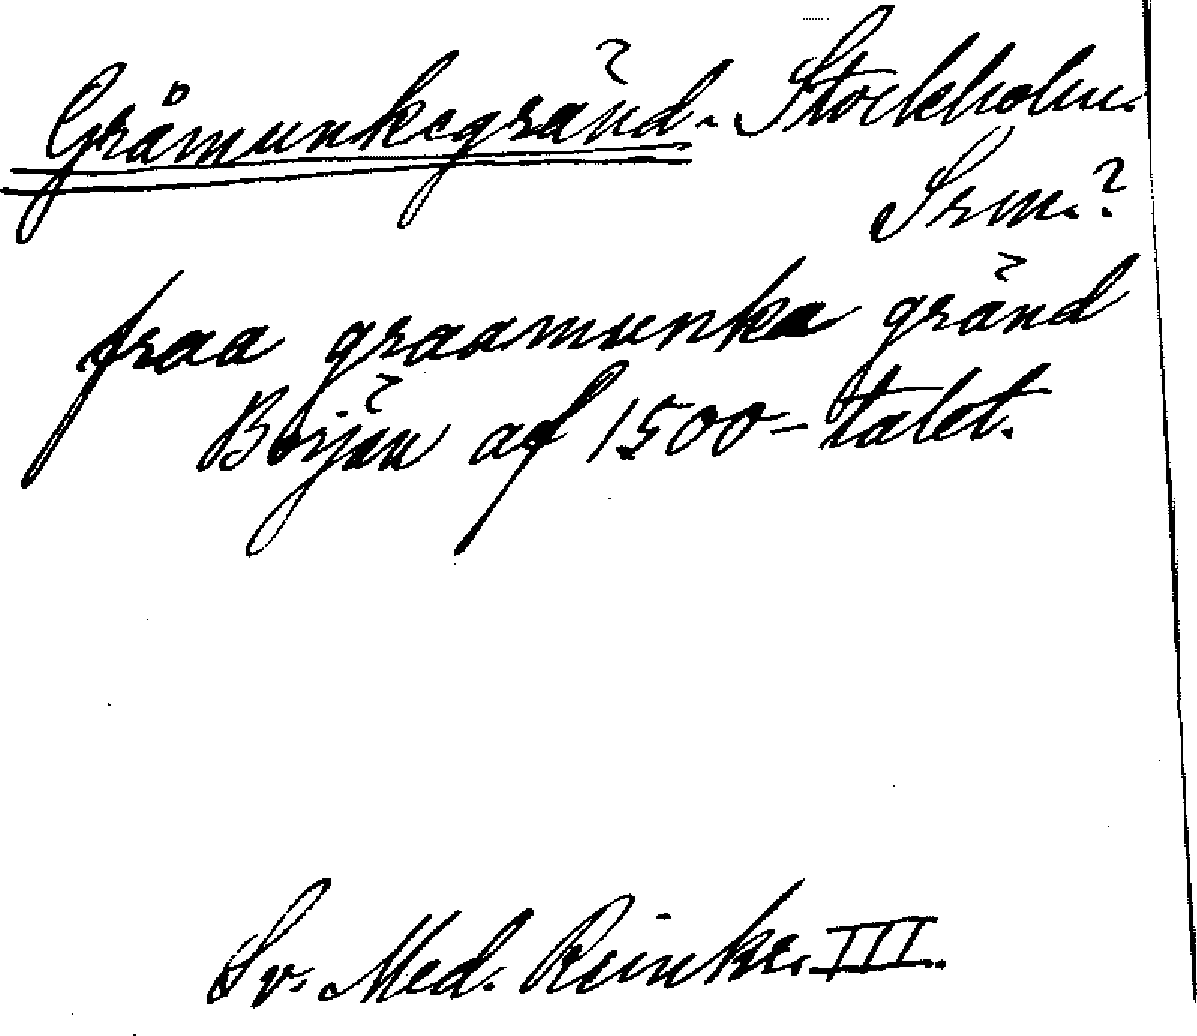 Gråmunkegränd. Stockholm.
Srm.?
fraa graamunka gränd
Början af 1500-talet.
Sv. Med. Reinke. III.